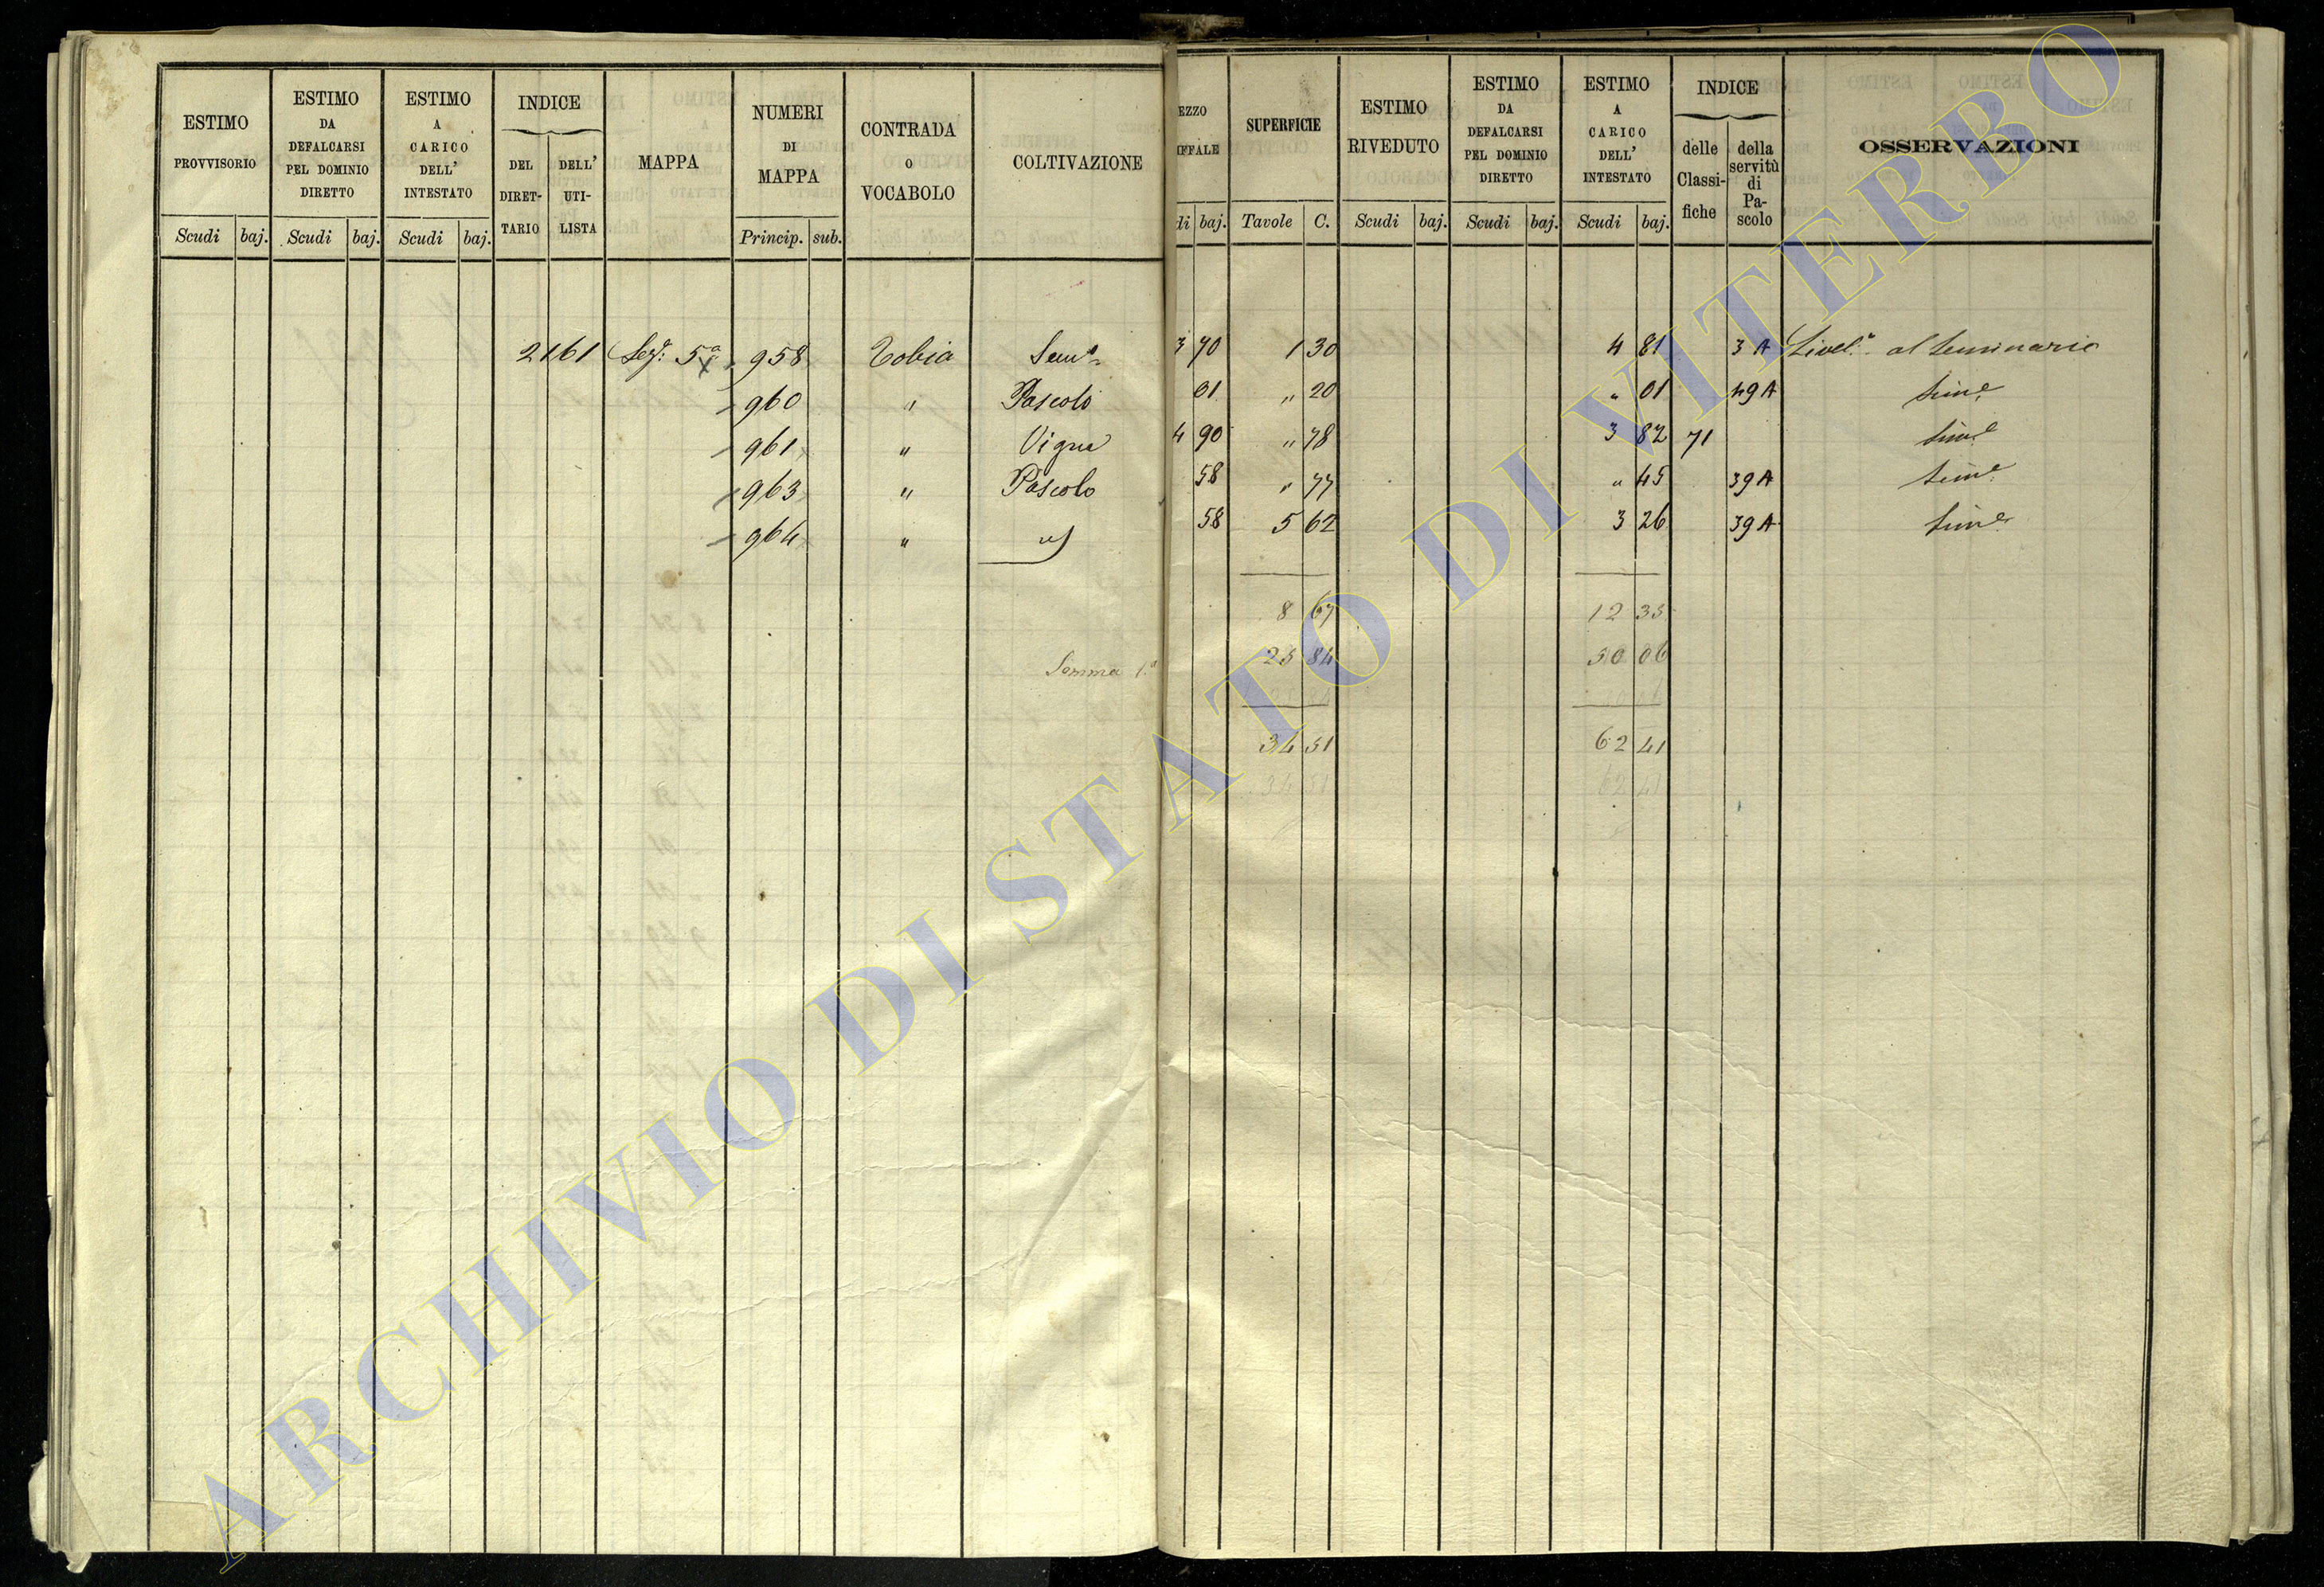 ESTIMO PROVVISORIO
Scudi baj.
ESTIMO DA DEFALCARSI PEL DOMINIO DIRETTO
Scudi baj.
ESTIMO A CARICO DELL' INTESTATO
Scudi baj.
INDICE
DEL DIRET-TARIO
DELL' UTI-LISTA
MAPPA
NUMERI DI MAPPA
Princip. sub.
CONTRADA O VOCABOLO
COLTIVAZIONE
EZZO
IFFALE
di baj.
SUPERFICIE
Tavole C.
ESTIMO RIVEDUTO
Scudi baj.
ESTIMO DA DEFALCARSI PEL DOMINIO DIRETTO
Scudi baj.
ESTIMO A CARICO DELL' INTESTATO
Scudi baj.
INDICE
delle Classi-fiche
della servitù di Pa-scolo
OSSERVAZIONI
2161 Sez. 5ª 958 Tobia Sem.º 3 70 1 30 4 81 3 A Livel.º al Seminario
960 " Pascolo 01 " 20 " 01 49 A Sim.e
961 " Vigna 4 90 " 78 3 82 71 Sim.e
963 " Pascolo 58 " 77 " 45 39 A Sim.e
964 " " 58 5 62 3 26 39 A Sim.e
8 67 12 35
Somma 1.ª 25 84 50 06
34 51 62 41
34 51 62 41
ARCHIVIO DI STATO DI VITERBO